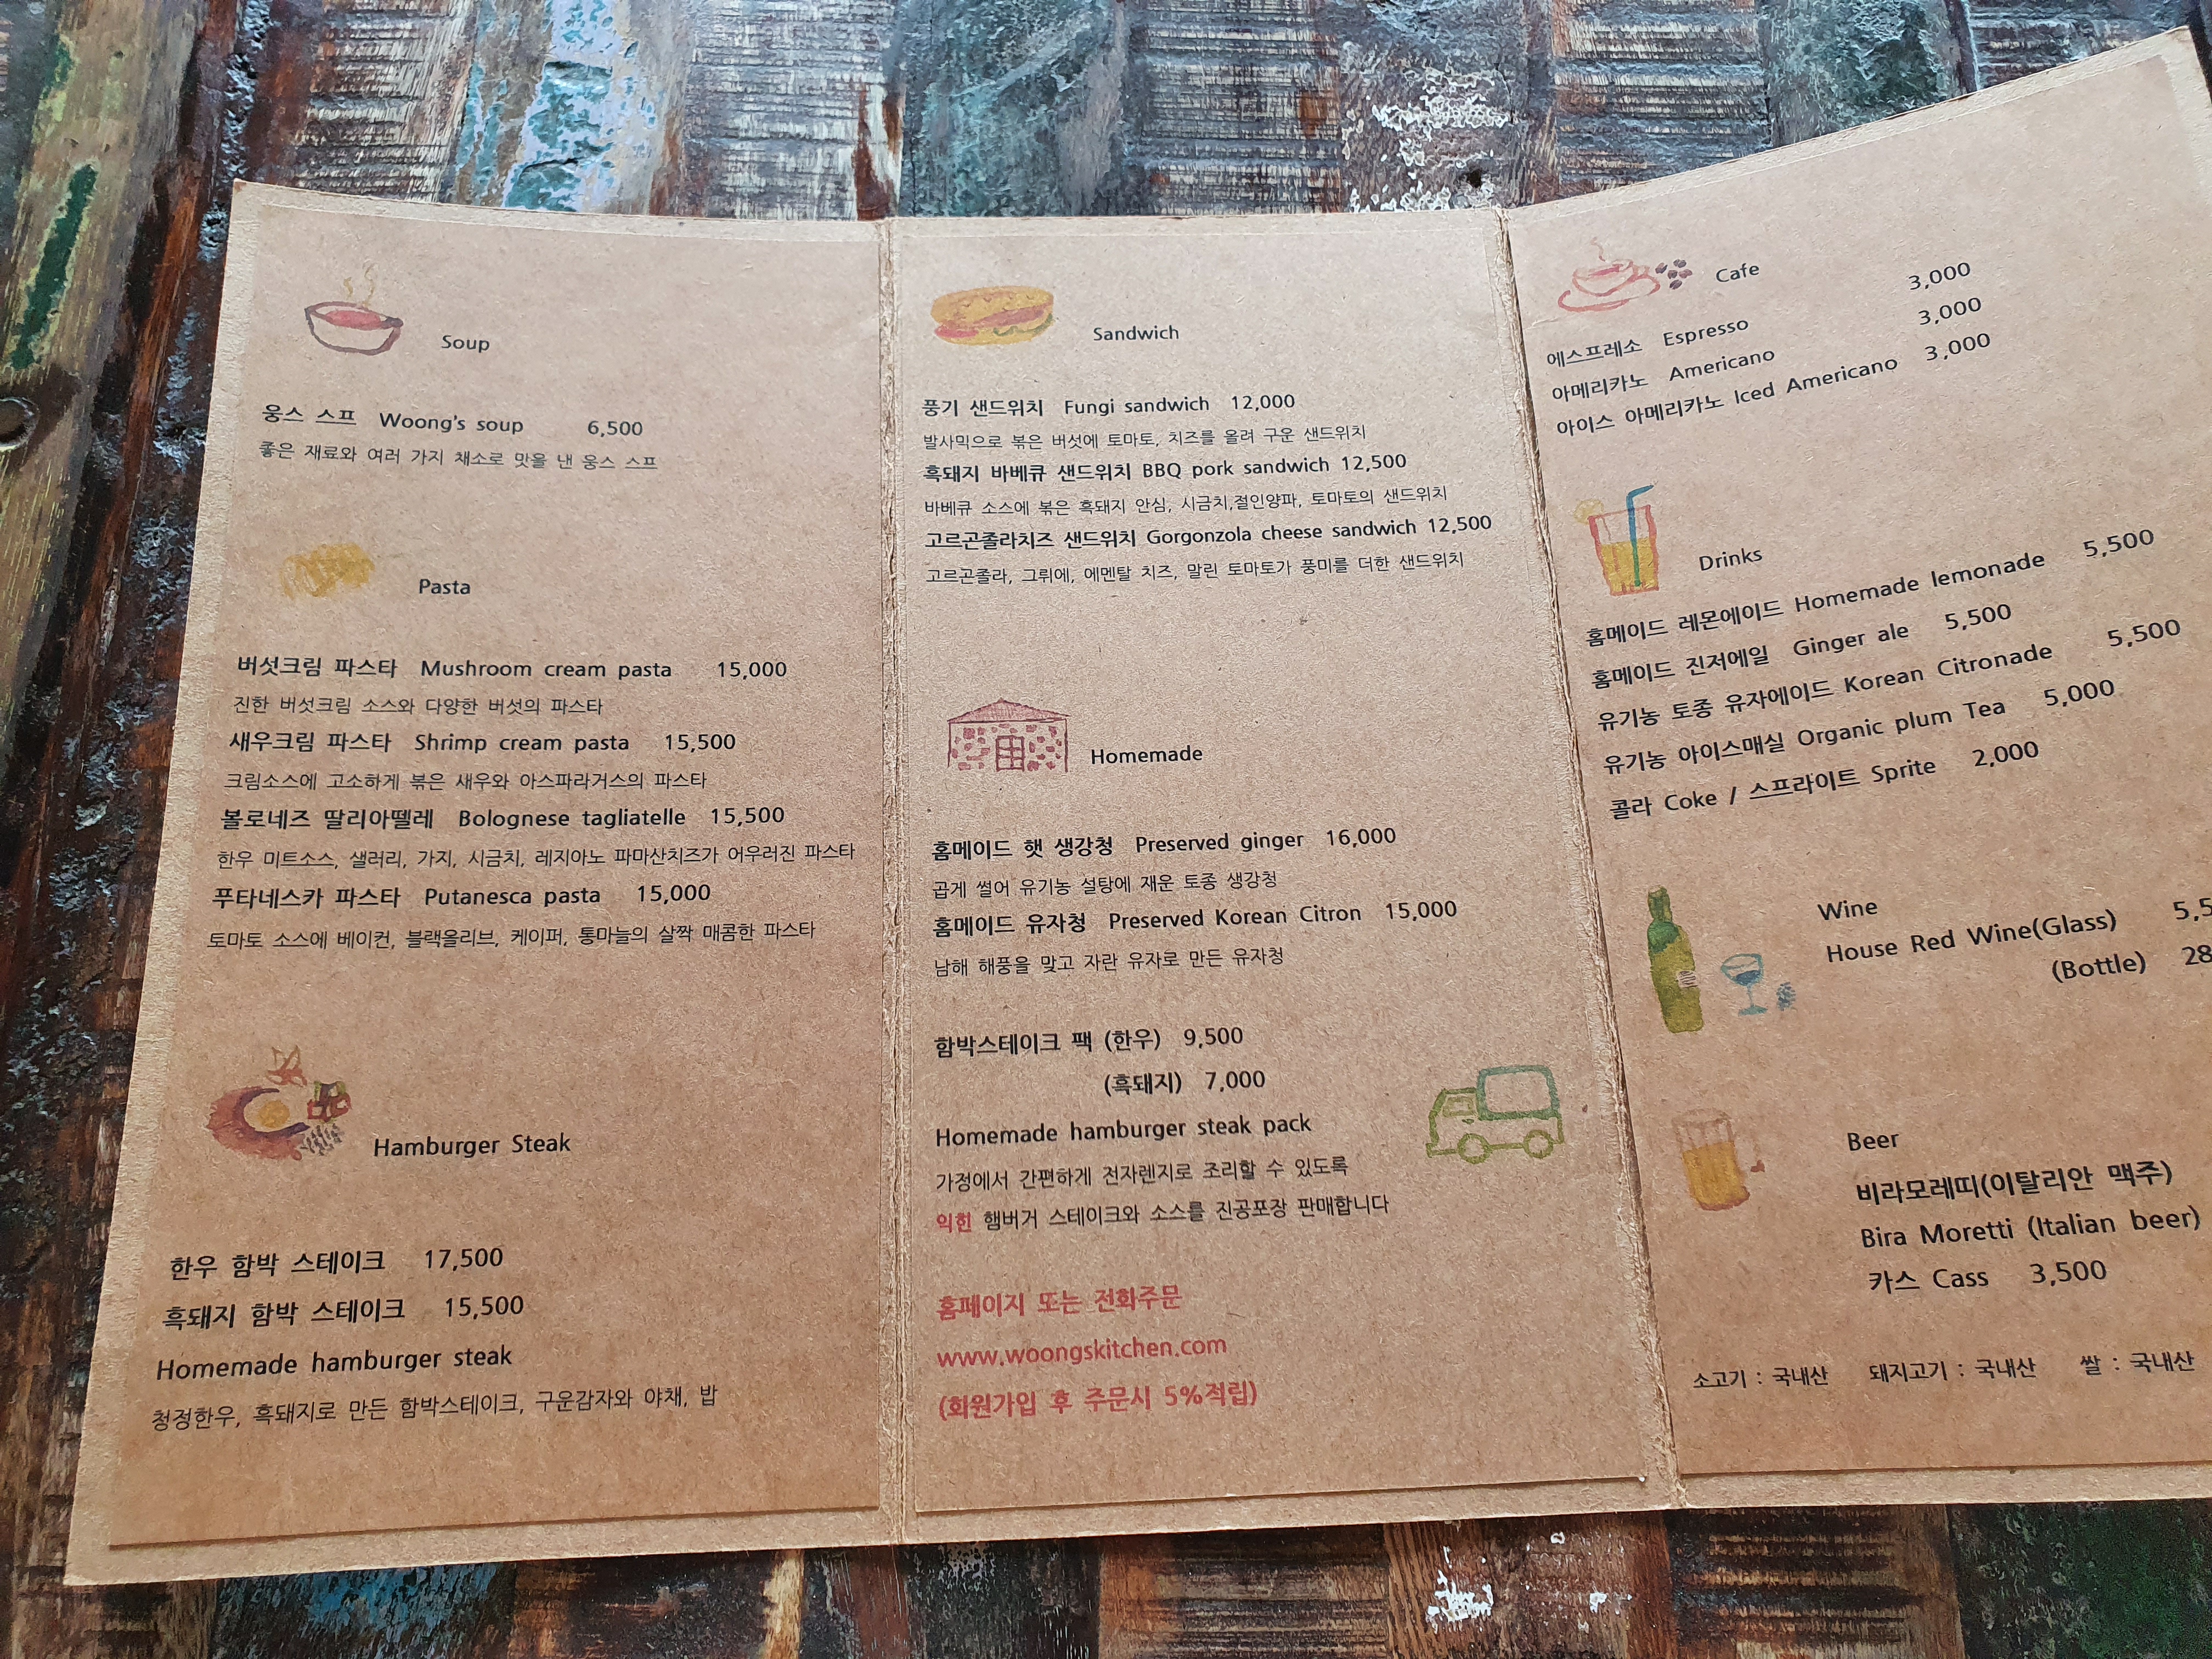 Soup
웅스 스프 Woong's soup 6,500
좋은 재료와 여러 가지 채소로 맛을 낸 웅스 스프
Pasta
버섯크림 파스타 Mushroom cream pasta 15,000
진한 버섯크림 소스와 다양한 버섯의 파스타
새우크림 파스타 Shrimp cream pasta 15,500
크림소스에 고소하게 볶은 새우와 아스파라거스의 파스타
볼로네즈 딸리아뗄레 Bolognese tagliatelle 15,500
한우 미트소스, 샐러리, 가지, 시금치, 레지아노 파마산치즈가 어우러진 파스타
푸타네스카 파스타 Putanesca pasta 15,000
토마토 소스에 베이컨, 블랙올리브, 케이퍼, 통마늘의 살짝 매콤한 파스타
Hamburger Steak
한우 함박 스테이크 17,500
흑돼지 함박 스테이크 15,500
Homemade hamburger steak
청정한우, 흑돼지로 만든 함박스테이크, 구운감자와 야채, 밥
Sandwich
풍기 샌드위치 Fungi sandwich 12,000
발사믹으로 볶은 버섯에 토마토, 치즈를 올려 구운 샌드위치
흑돼지 바베큐 샌드위치 BBQ pork sandwich 12,500
바베큐 소스에 볶은 흑돼지 안심, 시금치,절인양파, 토마토의 샌드위치
고르곤졸라치즈 샌드위치 Gorgonzola cheese sandwich 12,500
고르곤졸라, 그뤼에, 에멘탈 치즈, 말린 토마토가 풍미를 더한 샌드위치
Homemade
홈메이드 햇 생강청 Preserved ginger 16,000
곱게 썰어 유기농 설탕에 재운 토종 생강청
홈메이드 유자청 Preserved Korean Citron 15,000
남해 해풍을 맞고 자란 유자로 만든 유자청
함박스테이크 팩 (한우) 9,500
(흑돼지) 7,000
Homemade hamburger steak pack
가정에서 간편하게 전자렌지로 조리할 수 있도록
익힌 햄버거 스테이크와 소스를 진공포장 판매합니다
홈페이지 또는 전화주문
www.woongskitchen.com
(회원가입 후 주문시 5%적립)
Cafe
에스프레소 Espresso 3,000
아메리카노 Americano 3,000
아이스 아메리카노 Iced Americano 3,000
Drinks
홈메이드 레몬에이드 Homemade lemonade 5,500
홈메이드 진저에일 Ginger ale 5,500
유기농 토종 유자에이드 Korean Citronade 5,500
유기농 아이스매실 Organic plum Tea 5,000
콜라 Coke / 스프라이트 Sprite 2,000
Wine
House Red Wine(Glass) 5,5
(Bottle) 28
Beer
비라모레띠(이탈리안 맥주)
Bira Moretti (Italian beer)
카스 Cass 3,500
소고기 : 국내산 돼지고기 : 국내산 쌀 : 국내산